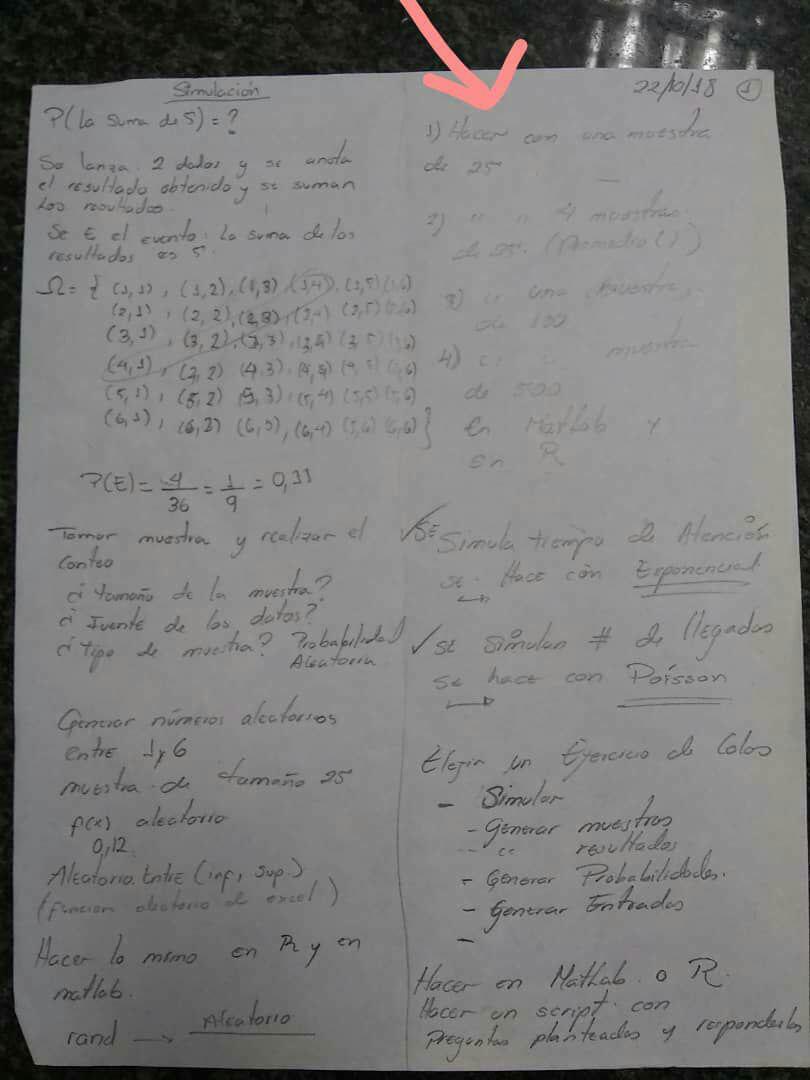 Simulación
22/10/18 1
P(La suma de 5) = ?
Se lanza 2 dados y se anota
el resultado obtenido y se suman
los resultados.
Se E el evento: La suma de los
resultados es 5.
Ω = { (1,1), (1,2), (1,3), (1,4), (1,5) (1,6)
(2,1), (2,2), (2,3), (2,4) (2,5) (2,6)
(3,1), (3,2), (3,3), (3,4) (3,5) (3,6)
(4,1), (2,2) (4,3) (4,4) (4,5) (4,6)
(5,1), (5,2) (5,3), (5,4) (5,5) (5,6)
(6,1), (6,2) (6,3), (6,4) (5,6) (6,6) }
P(E) = 4/36 = 1/9 = 0,11
Tomar muestra y realizar el
conteo
¿ tamaño de la muestra?
¿ Fuente de los datos?
¿ Tipo de muestra? Probabilidad
Aleatoria
Generar números aleatorios
entre 1 y 6
muestra de tamaño 25
f(x) aleatorio
0,12
Aleatorio.Entre (inf, sup.)
(funcion aleatorio de excel)
Hacer lo mismo en R y en
matlab.
rand → Aleatorio
1) Hacer con una muestra
de 25
2) " " 4 muestras
de 25. (Promedio ( ))
3) " una muestra,
de 100
4) " " muestra
de 500
En Matlab y
en R
✓ SE Simula tiempo de Atención
se Hace con Exponencial
✓ se simulan # de llegadas
se hace con Poisson
Elegir un Ejercicio de Colas
- Simular
- Generar muestras
- " resultados
- Generar Probabilidades.
- Generar Entradas
-
Hacer en Mathab o R.
Hacer un script con
Preguntas planteadas y responderlas